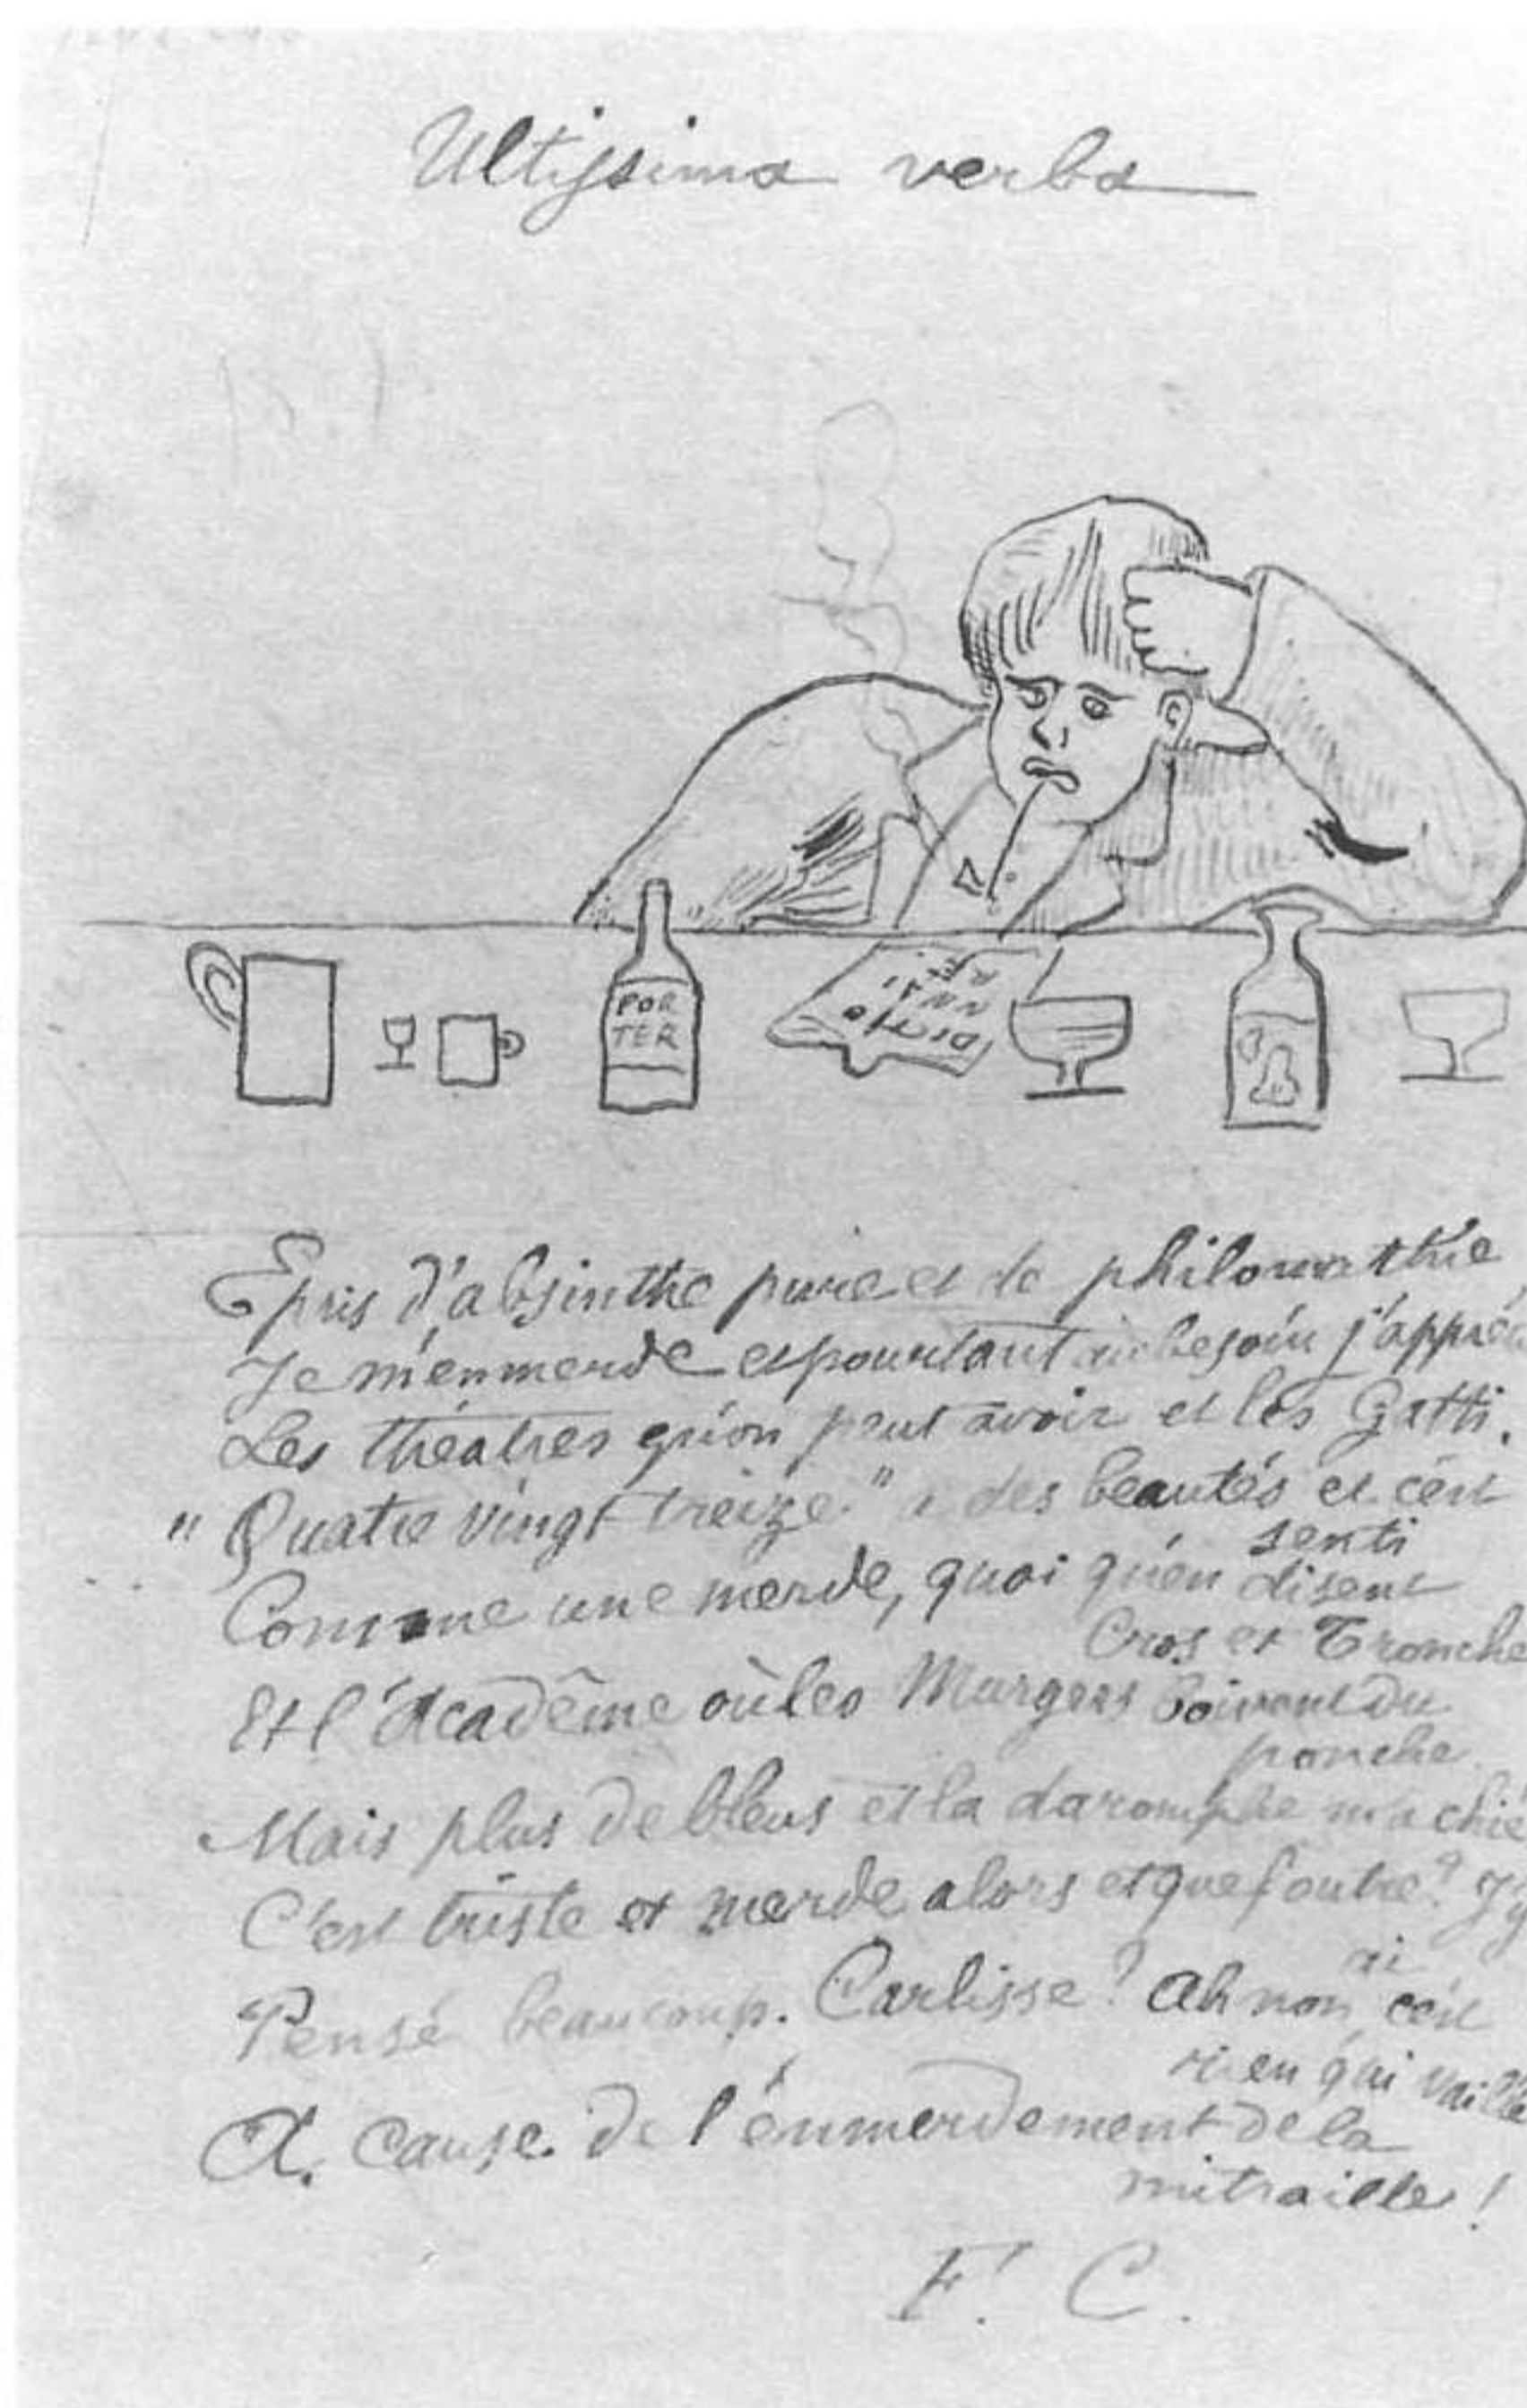 Ultissima verba
POR
TER
DICTIO
NNAI
RE
Epris d'absinthe pure et de philomathie
Je m'enmerde et pourtant au besoin j'appréc
Les théatres qu'on peut avoir et les Gatti.
"Quatre vingt treize" a des beautés et c'est
senti
Comme une merde, quoi qu'en disent
Cros et Tronche
Et l'Académe où les Murgers boivent du
ponche
Mais plus de bleus et la daromphe m'a chié
C'est triste et merde alors et que foutre? J'y
ai
Pensé beaucoup. Carlisse? Ah non, c'est
rien qui vaille
A cause de l'enmerdement de la
mitraille!
F. C.